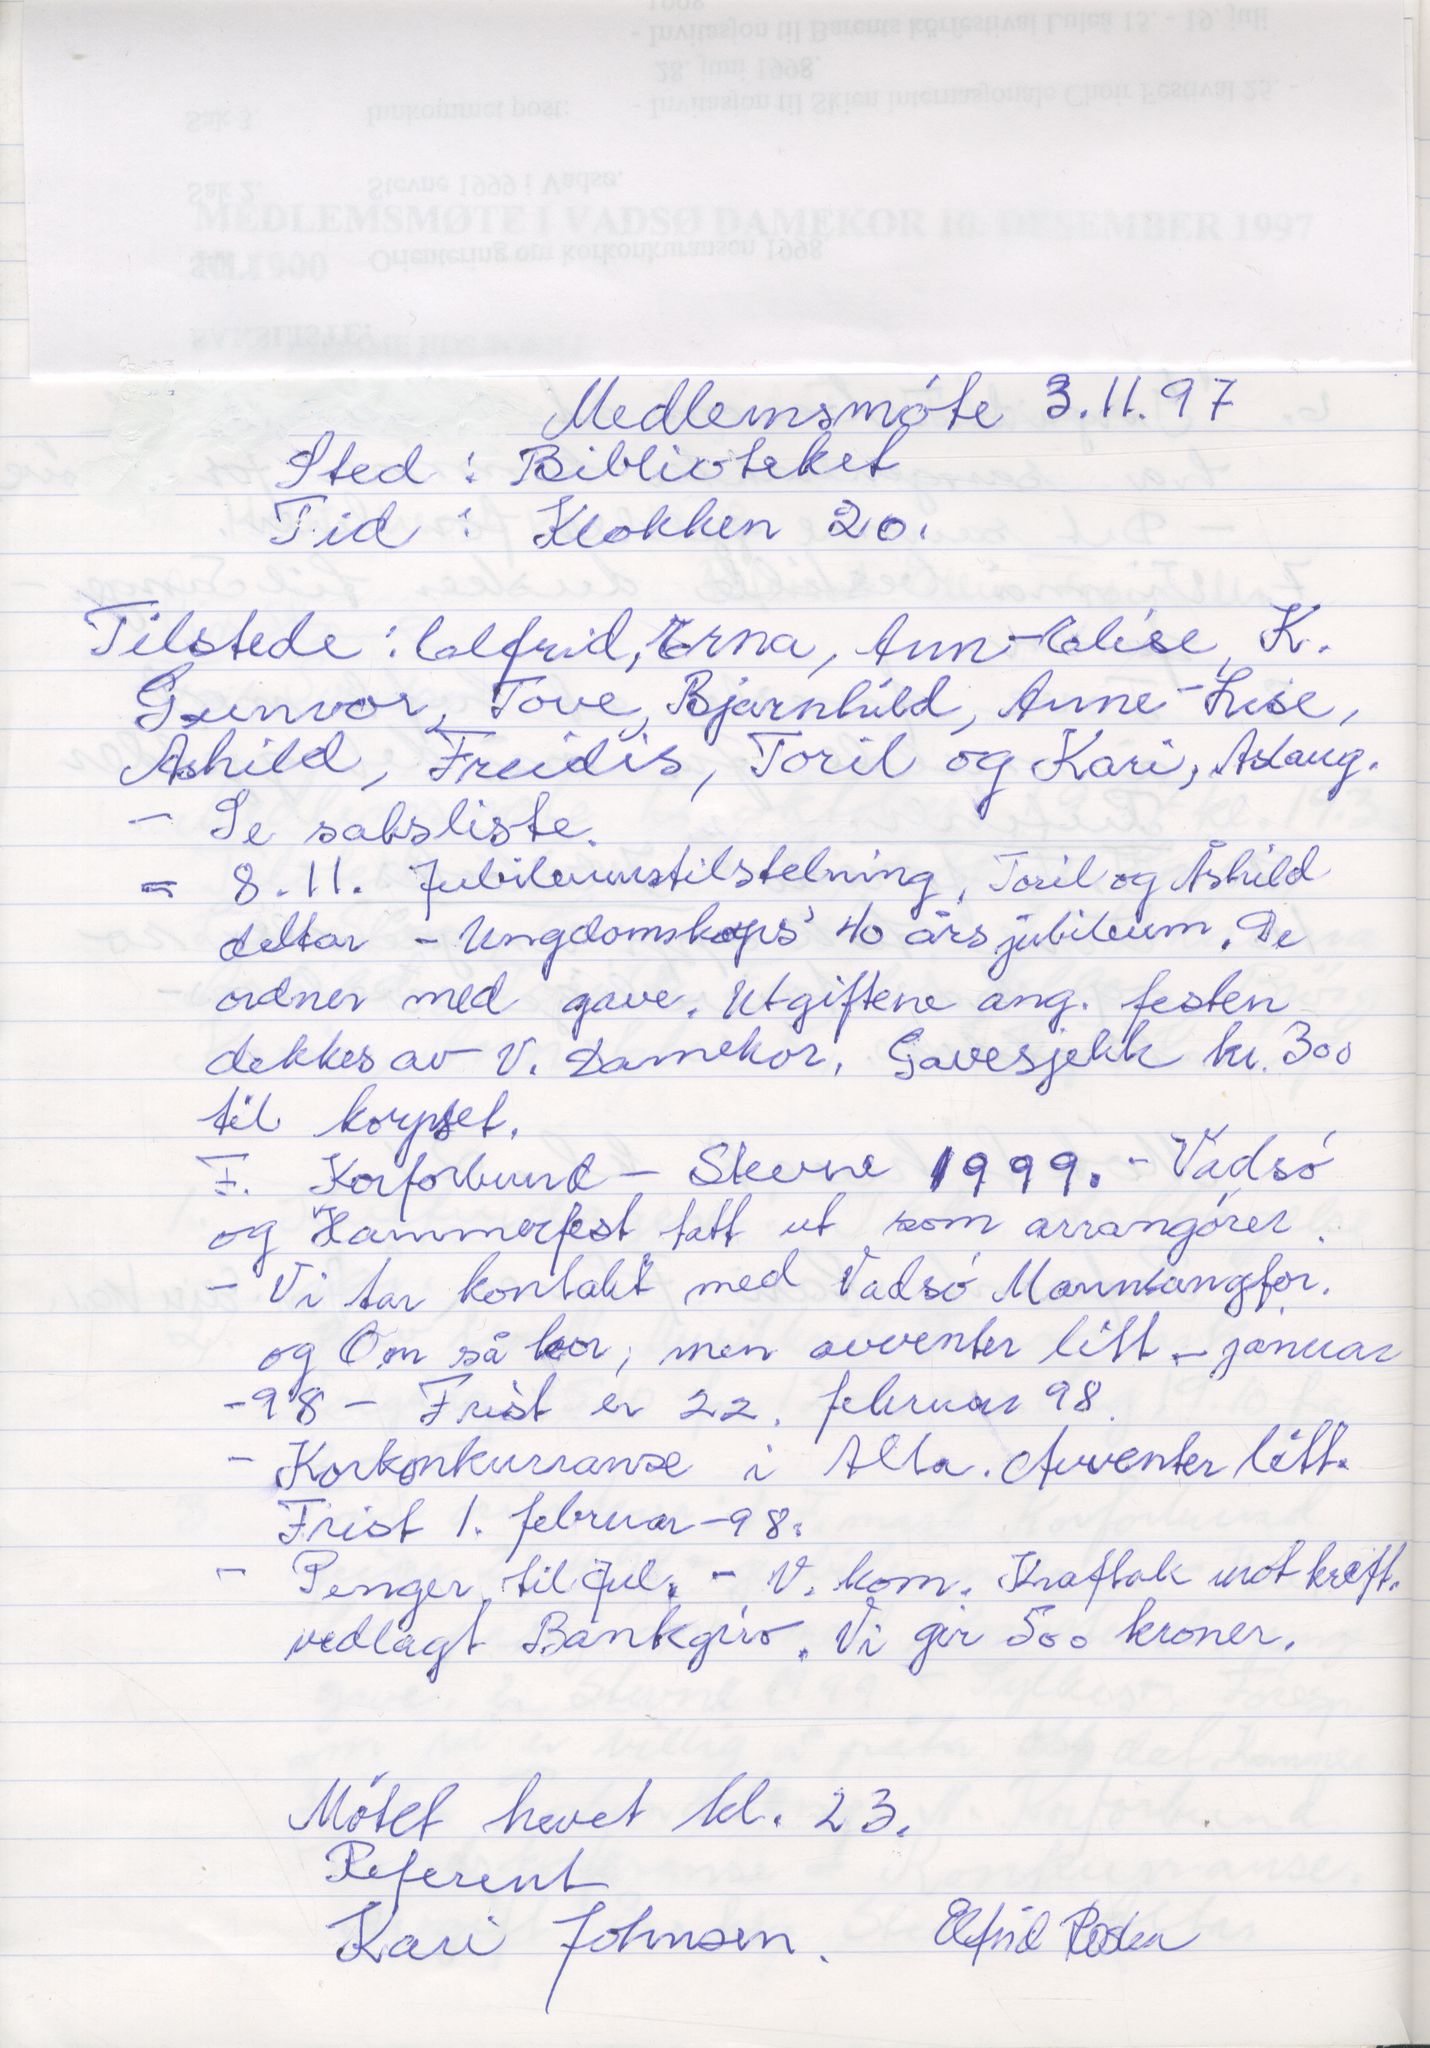 Medlemsmóte 3.11.97
Sted : Biblioteket
Tid : Klokken 20.
Tilstede : Elfrid, Erna, Ann-Elise, K.
Gunvor, Tove, Bjarnhild, Anne-Lise,
Åshild, Freidis, Toril og Kari, Aslaug.
- Se saksliste.
- 8.11. Jubileumstilstelning, Toril og Åshild
deltar - Ungdomskorps' 40 års jubileum. De
ordner med gave. Utgiftene ang. festen
dekkes av V. Damekor. Gavesjekk kr. 300
til korpset.
F. Korforbund - Stevne 1999. - Vadsó
og Hammerfest tatt ut som arrangórer.
- Vi tar kontakt med Vadsó Mannsangfor.
og Om så kor, men avventer litt - januar
-98 - Frist er 22. februar 98.
- Korkonkurranse i Alta. Avventer litt.
Frist 1. februar -98.
- Penger til Jul. - V. kom. Kraftak mot kreft.
vedlagt Bankgiro. Vi gir 500 kroner.
Mótet hevet kl. 23.
Referent
Kari Johnsen. Elfrid